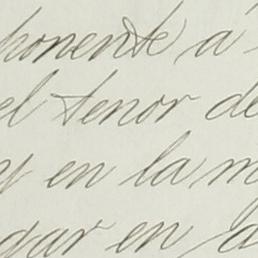 ponente á
el tenor de
y en la m
gar en a